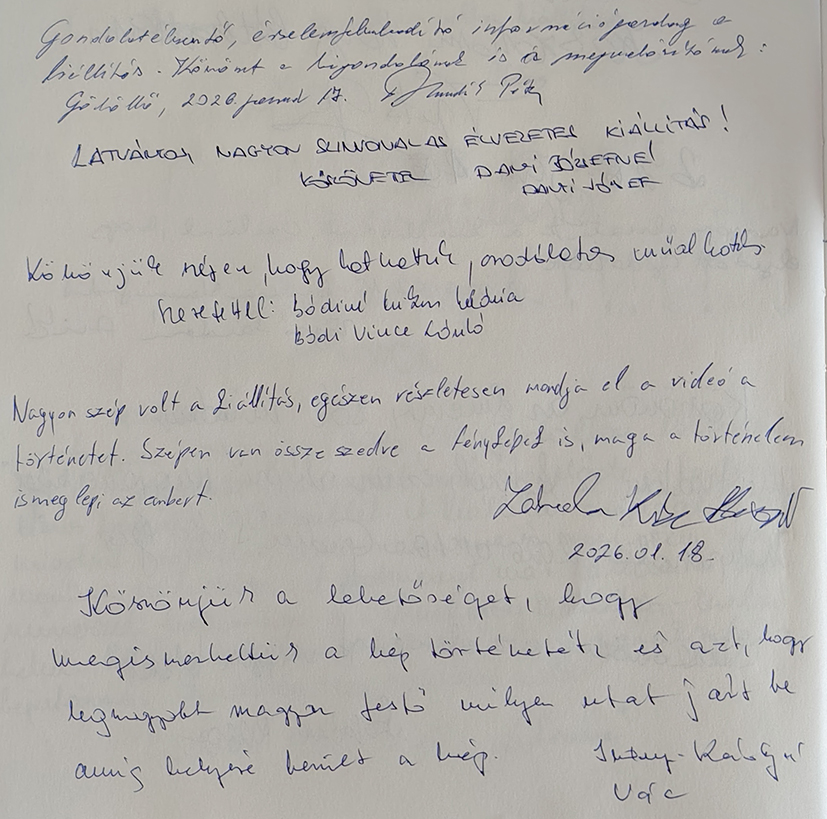 Gondolatébresztő, érzelemfelkavaró információgazdag a
kiállítás. Köszönet a kigondolónak is és megvalósítónak!
Gödöllő, 2026. január 17.
LÁTVÁNYOS, NAGYON SZINVONALAS ÉLVEZETES KIÁLLÍTÁS!
KÖSZÖNETTEL DANI JÓZSEFNÉ!
DANI JÓZSEF
Köszönjük szépen, hogy láthattuk, csodálatos műalkotás.
Szeretettel: Bódiné
Bódi Vince
Nagyon szép volt a kiállítás, egészen részletesen mondja el a videó a
történetet. Szépen van össze szedve a fényképek is, maga a történelem
is meg lepi az embert.
2026.01.18.
Köszönjük a lehetőséget, hogy
megismerhettük a kép történetét, és azt, hogy
legnagyobb magyar festő milyen utat járt be
amíg helyére került a kép.
Vác